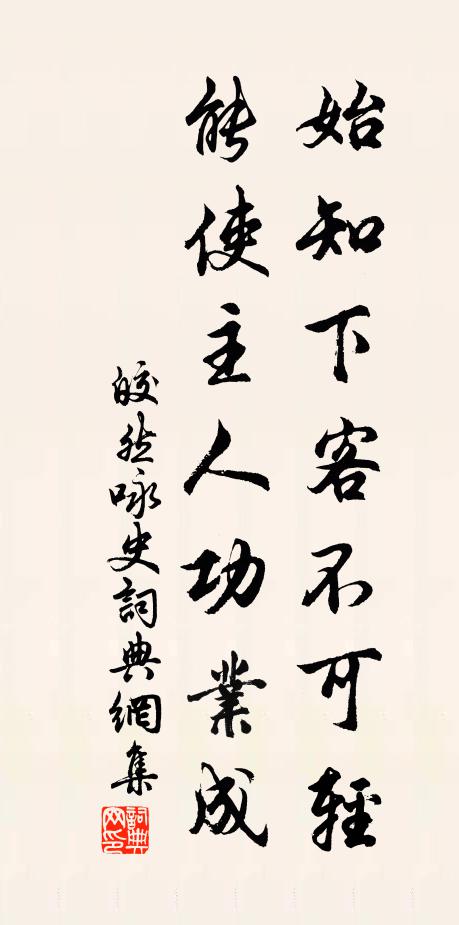 始知下客不可輕
能使主人功業成
皎然咏史詞典網集
詞典
网印